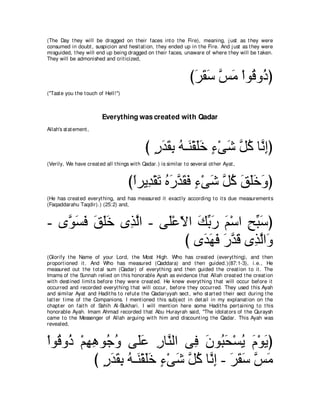 (The Day they will be dragged on their faces into the Fire), meaning, just as they were
consumed in doubt, suspicion and hesitation, they ended up in the Fire. And just as they were
misguided, they will end up being dragged on their faces, unaware of where they will be taken.
They will be admonished and criticized,
(ذُوقُواْ مَسَّ سَقَرَ)
("Taste you the touch of Hell!")
Everything was created with Qadar
Allah's statement,
(إِنَّا كُلَّ شَىْءٍ خَلَقْنَـهُ بِقَدَرٍ )
(Verily, We have created all things with Qadar.) is similar to several other Ayat,
(وَخَلَقَ كُلَّ شَىْءٍ فَقَدَّرَهُ تَقْدِيراً)
(He has created everything, and has measured it exactly according to its due measurements
(Faqaddarahu Taqdir).) (25:2) and,
(سَبِّحِ اسْمَ رَبِّكَ الاٌّعْلَى - الَّذِى خَلَقَ فَسَوَّى -
وَالَّذِى قَدَّرَ فَهَدَى )
(Glorify the Name of your Lord, the Most High. Who has created (everything), and then
proportioned it. And Who has measured (Qaddara) and then guided.)(87:1-3), i.e., He
measured out the total sum (Qadar) of everything and then guided the creation to it. The
Imams of the Sunnah relied on this honorable Ayah as evidence that Allah created the creation
with destined limits before they were created. He knew everything that will occur before it
occurred and recorded everything that will occur, before they occurred. They used this Ayah
and similar Ayat and Hadiths to refute the Qadariyyah sect, who started their sect during the
latter time of the Companions. I mentioned this subject in detail in my explanation on the
chapter on faith of Sahih Al-Bukhari. I will mention here some Hadiths pertaining to this
honorable Ayah. Imam Ahmad recorded that Abu Hurayrah said, "The idolators of the Quraysh
came to the Messenger of Allah arguing with him and discounting the Qadar. This Ayah was
revealed,
(يَوْمَ يُسْحَبُونَ فِى النَّارِ عَلَى وُجُوهِهِمْ ذُوقُواْ
مَسَّ سَقَرَ - إِنَّا كُلَّ شَىْءٍ خَلَقْنَـهُ بِقَدَرٍ )